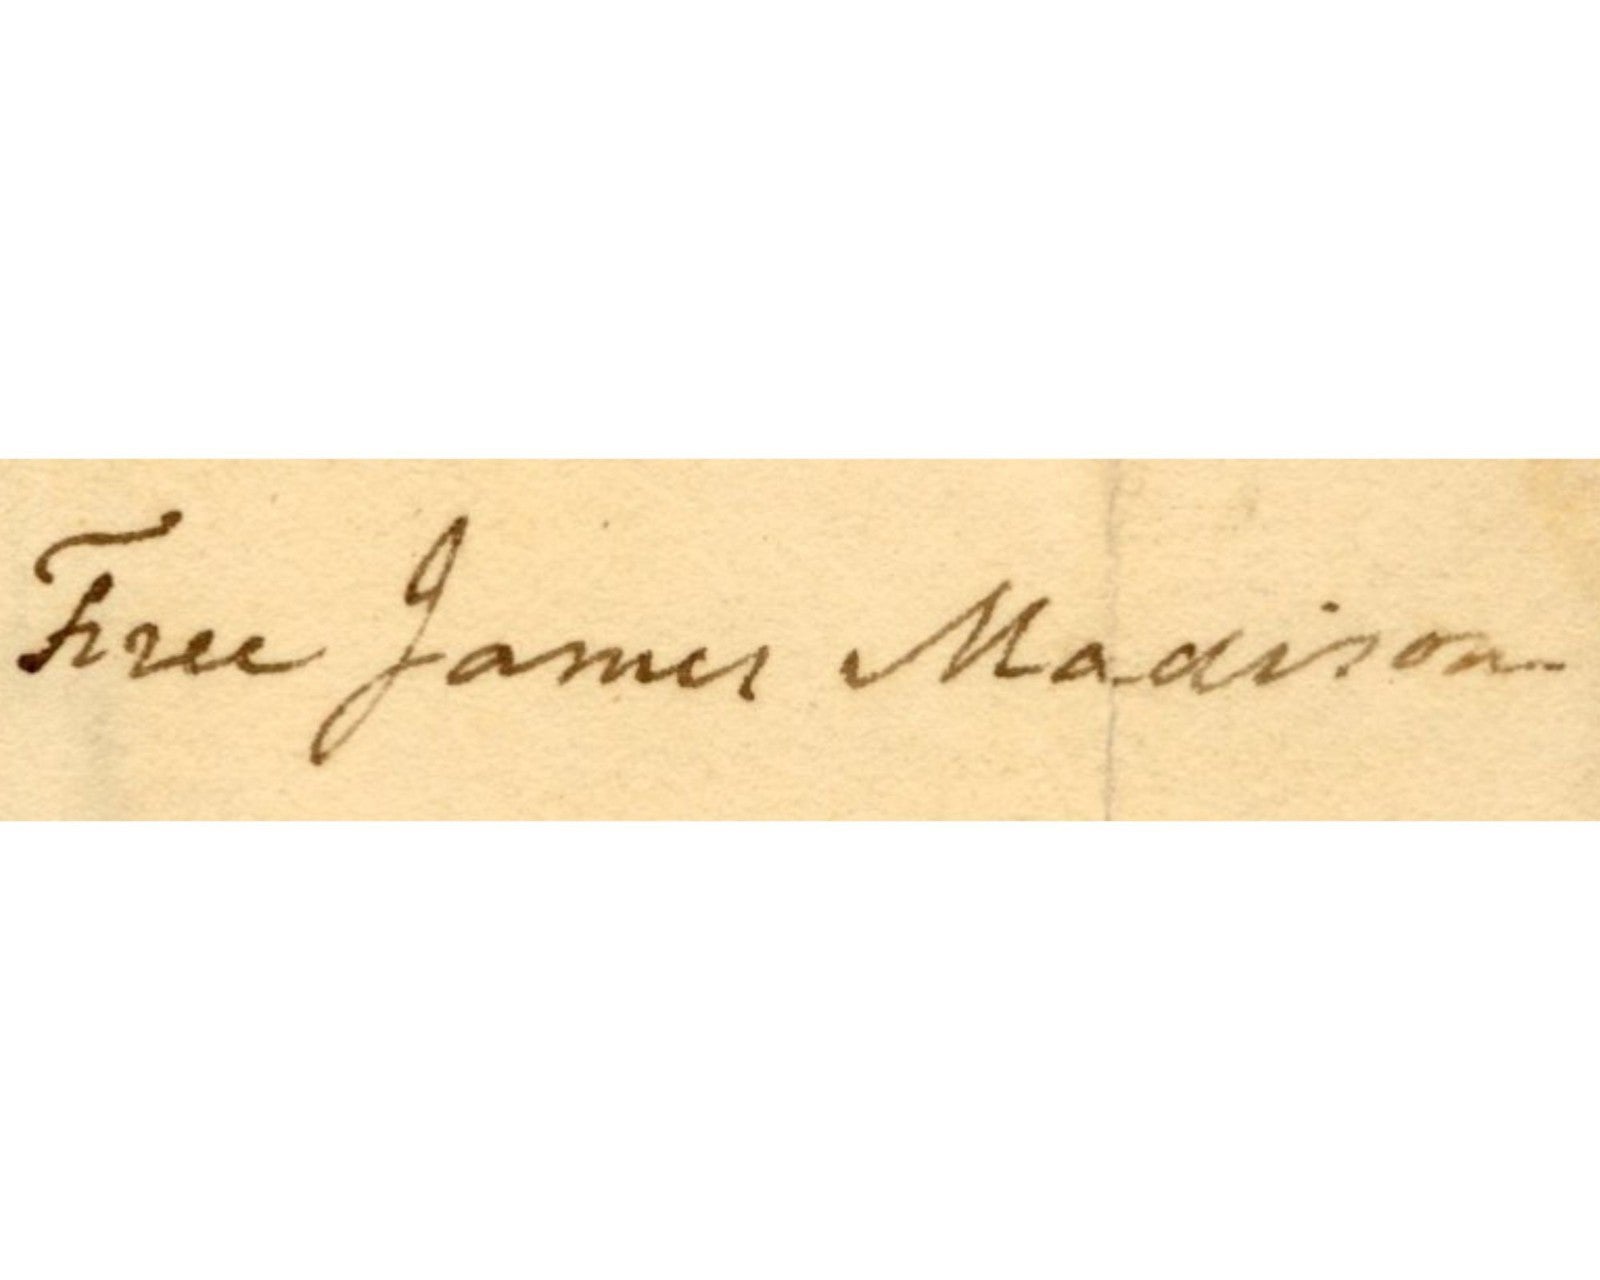 Free James Madison